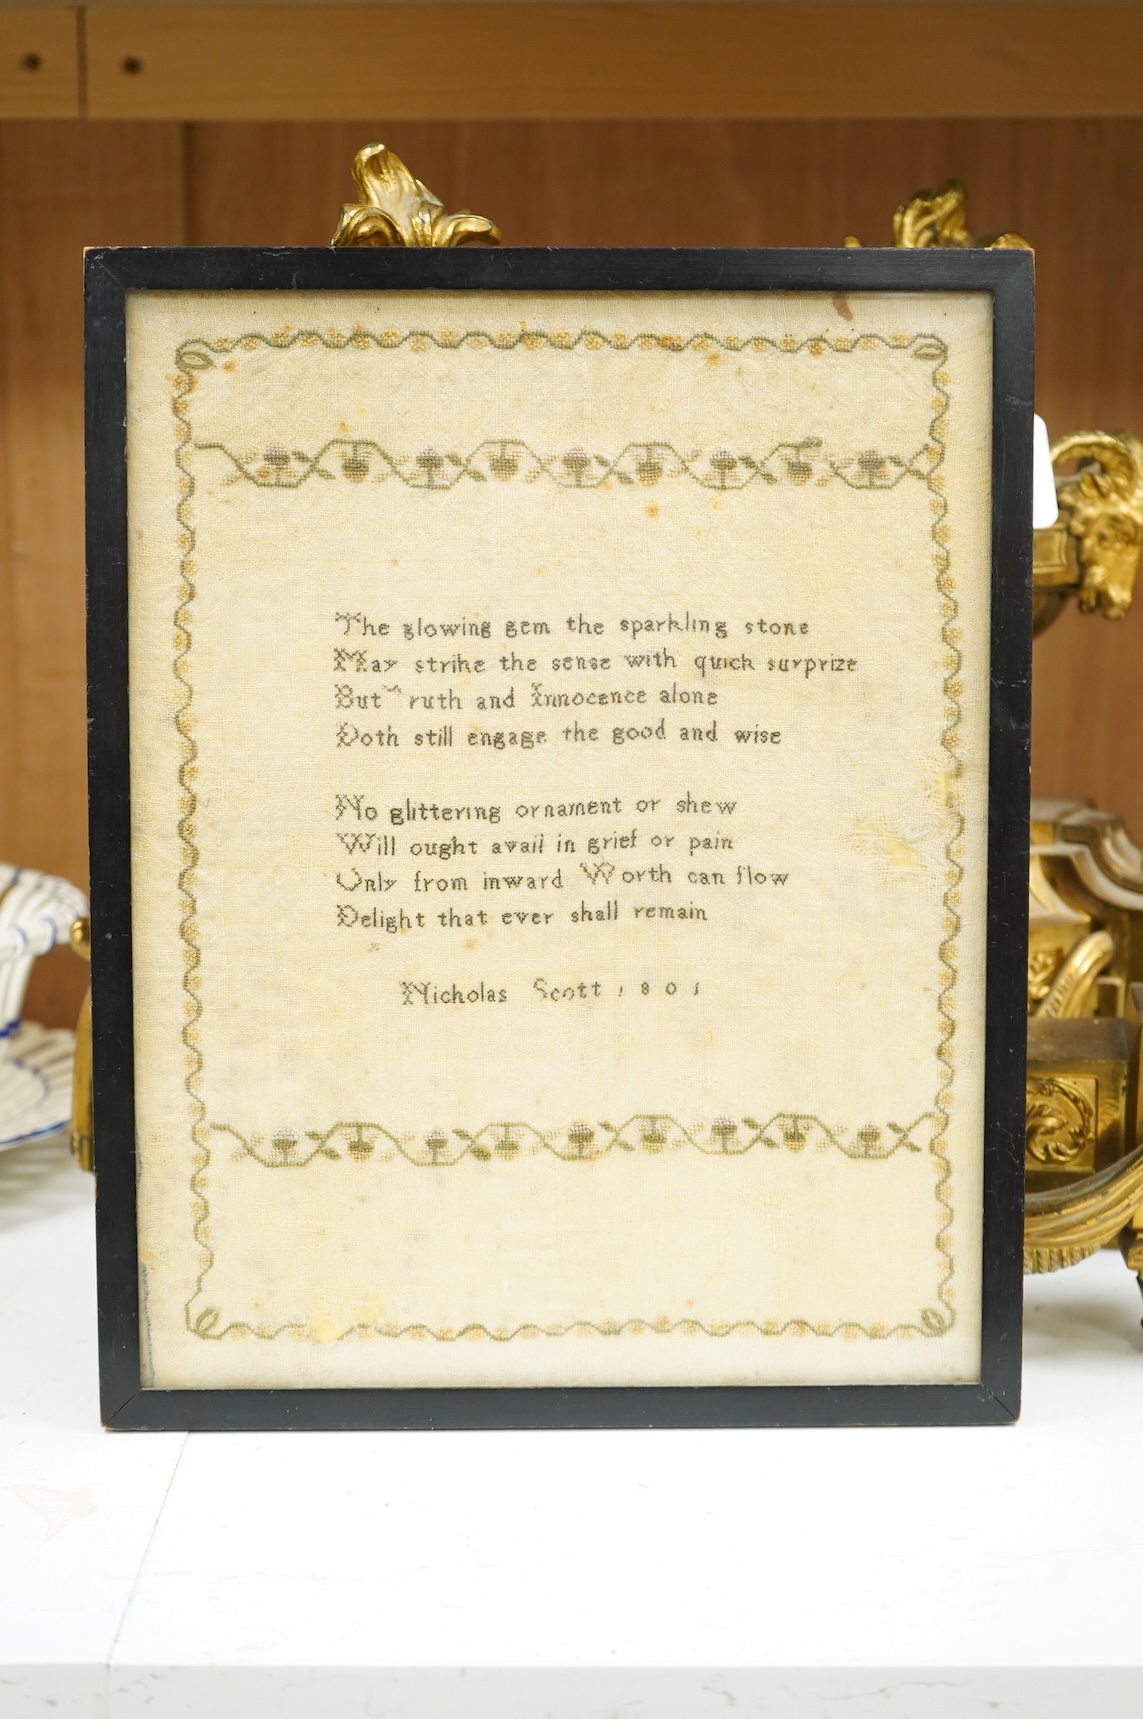 The glowing gem the sparkling stone
May strike the sense with quick surprize
But Truth and Innocence alone
Doth still engage the good and wise
No glittering ornament or shew
Will ought avail in grief or pain
Only from inward Worth can flow
Delight that ever shall remain
Nicholas Scott 1801